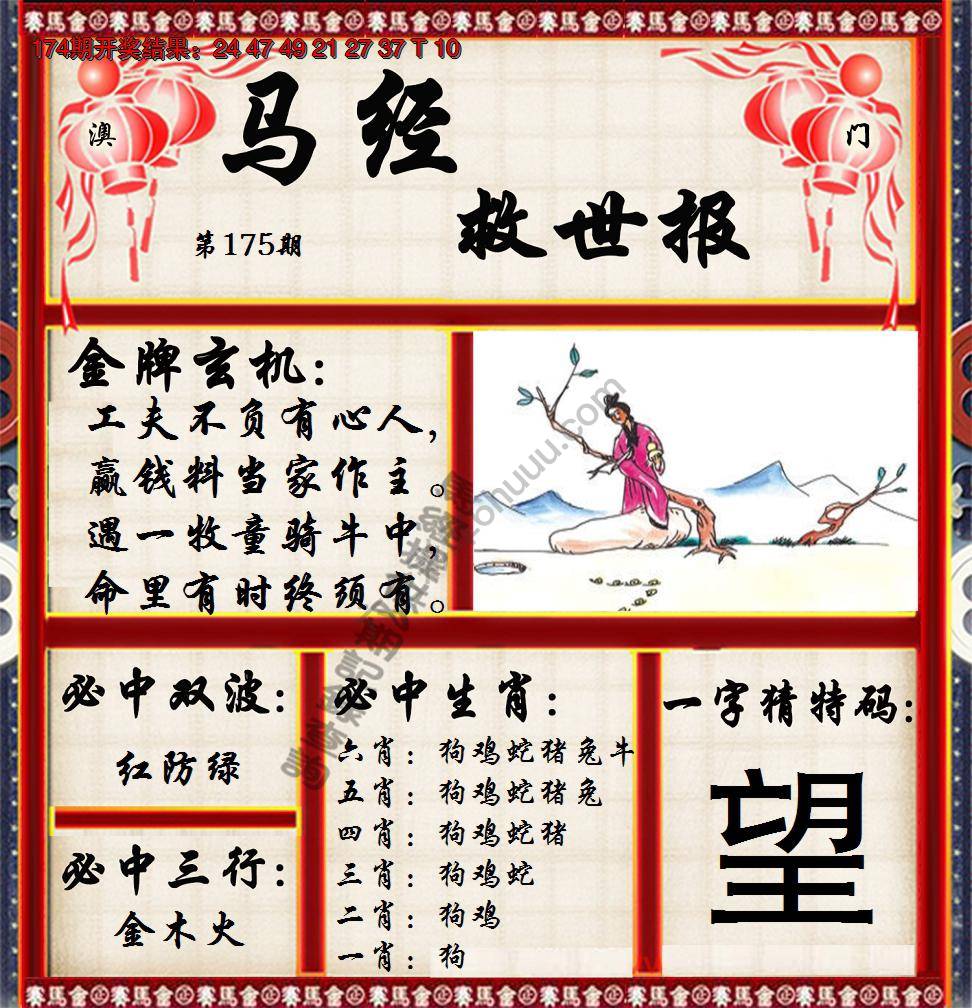 174期开奖结果：24 47 49 21 27 37 T 10
澳 门
马经
救世报
第175期
金牌玄机：
工夫不负有心人，
赢钱料当家作主。
遇一牧童骑牛中，
命里有时终须有。
必中双波：
红防绿
必中三行：
金木火
必中生肖：
六肖：狗鸡蛇猪兔牛
五肖：狗鸡蛇猪兔
四肖：狗鸡蛇猪
三肖：狗鸡蛇
二肖：狗鸡
一肖：狗
一字猜特码：
望